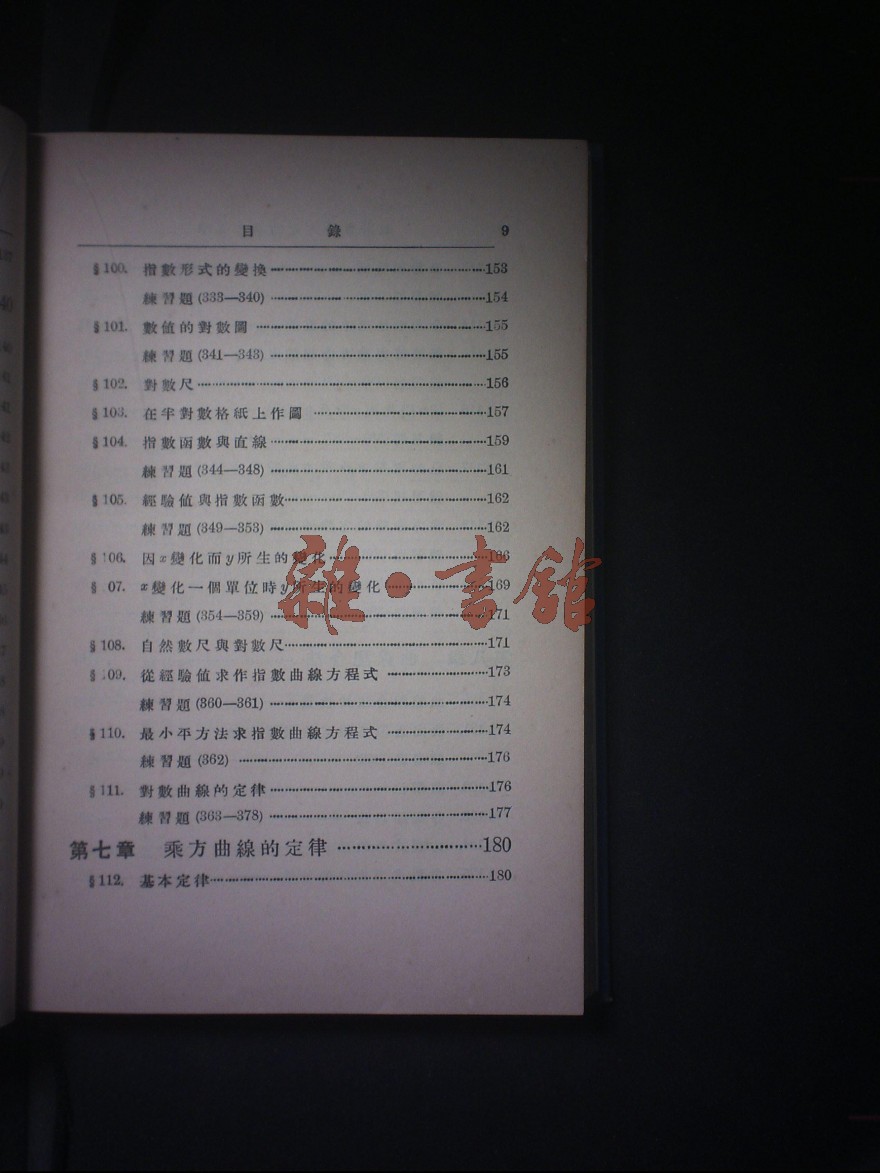 目 錄 9
§100. 指數形式的變換 153
練習題(333—340) 154
§101. 數值的對數圖 155
練習題(341—343) 155
§102. 對數尺 156
§103. 在半對數格紙上作圖 157
§104. 指數函數與直線 159
練習題(344—348) 161
§105. 經驗值與指數函數 162
練習題(349—353) 162
§106. 因x變化而y所生的變化 166
§ 07. x變化一個單位時y所生的變化 169
練習題(354—359) 171
§108. 自然數尺與對數尺 171
§109. 從經驗值求作指數曲線方程式 173
練習題(360—361) 174
§110. 最小平方法求指數曲線方程式 174
練習題(362) 176
§111. 對數曲線的定律 176
練習題(363—378) 177
第七章 乘方曲線的定律 180
§112. 基本定律 180
雜·書館